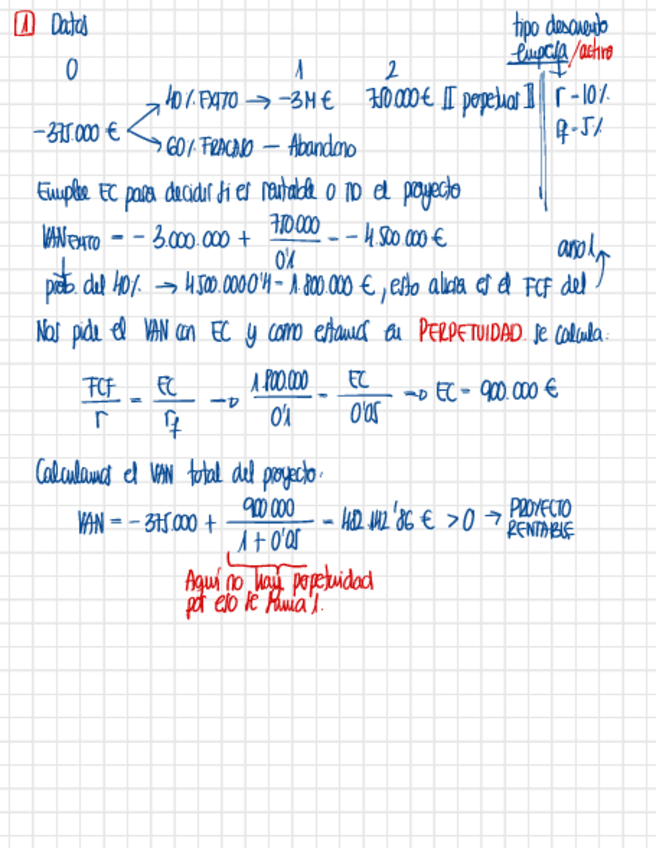 1 Datos
tipo descuento
empresa/activo
0 1 2
-375.000 € 40% EXITO → -3M € 750.000 € [[ perpetuas ]] r = 10%
60% FRACASO — Abandono rf = 5%
Emplee EC para decidir si es rentable o no el proyecto
VAN EXITO = -3.000.000 + 750000 / 0'1 = 4.500.000 €
año 1
prob. del 40% → 4.500.000·0'4 = 1.800.000 €, esto ahora es el FCF del
Nos pide el VAN con EC y como estamos en PERPETUIDAD se calcula:
FCF / r = EC / rf → 1.800.000 / 0'1 = EC / 0'05 → EC = 900.000 €
Calculamos el VAN total del proyecto.
VAN = -375.000 + 900000 / 1+0'05 = 482.142'86 € > 0 → PROYECTO RENTABLE
Aquí no hay perpetuidad
por eso se suma 1.